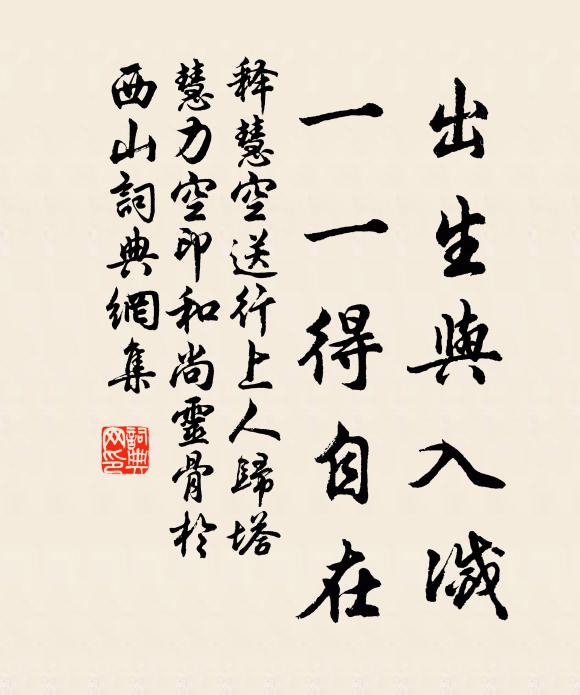 出生與入滅
一一得自在
释慧空送行上人歸塔
慧力空印和尚靈骨於
西山詞典網集
詞典
网印